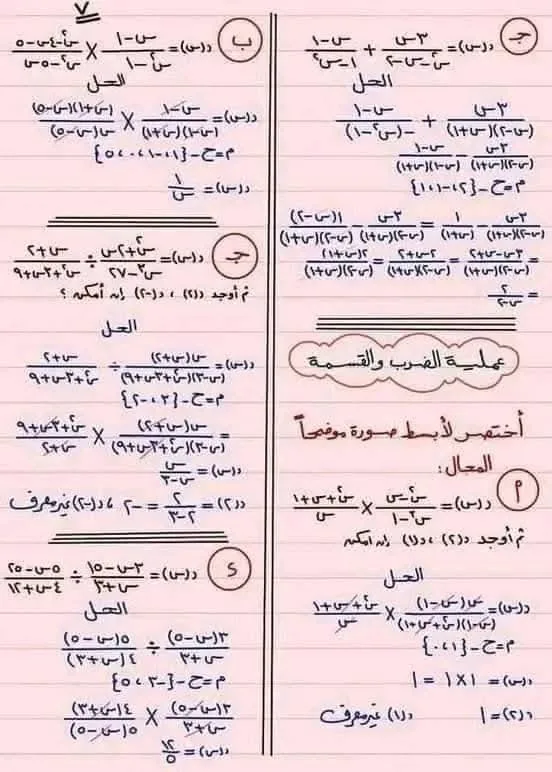 ٧
جـ د(س) = ٣س / (س² - س - ٢) + (س - ١) / (١ - س²)
الحل
٣س / (س-٢)(س+١) + (س-١) / -(س²-١)
٣س / (س-٢)(س+١) - (س-١) / (س-١)(س+١)
م = ح - {٢، -١، ١}
٣س / (س-٢)(س+١) - ١ / (س+١) = ٣س / (س-٢)(س+١) - ١(س-٢) / (س-٢)(س+١)
= (٣س - س + ٢) / (س-٢)(س+١) = (٢س + ٢) / (س-٢)(س+١) = ٢(س+١) / (س-٢)(س+١)
= ٢ / (س-٢)
عملية الضرب والقسمة
أختصر لأبسط صورة موضحاً
المجال:
م د(س) = (س² - س) / (س³ - ١) × (س² + س + ١) / س
ثم أوجد د(٢)، د(١) إن أمكن
الحل
د(س) = س(س-١) / (س-١)(س²+س+١) × (س²+س+١) / س
م = ح - {٠، ١}
د(س) = ١ × ١ = ١
د(٢) = ١ د(١) غير معرف
ب د(س) = (س - ١) / (س² - ١) × (س² - ٤س - ٥) / (س² - ٥س)
الحل
د(س) = (س-١) / (س-١)(س+١) × (س+١)(س-٥) / س(س-٥)
م = ح - {١، -١، ٠، ٥}
د(س) = ١ / س
جـ د(س) = (س² + ٢س) / (س³ - ٢٧) ÷ (س + ٢) / (س² + ٣س + ٩)
ثم أوجد د(٢)، د(-٢) إن أمكن ؟
الحل
د(س) = س(س+٢) / (س-٣)(س²+٣س+٩) ÷ (س+٢) / (س²+٣س+٩)
م = ح - {٣، -٢}
= س(س+٢) / (س-٣)(س²+٣س+٩) × (س²+٣س+٩) / (س+٢)
د(س) = س / (س-٣)
د(٢) = ٢ / (٢-٣) = -٢ ، د(-٢) غير معرف
د د(س) = (٣س - ١٥) / (س + ٣) ÷ (٥س - ٢٥) / (٤س + ١٢)
الحل
٣(س-٥) / (س+٣) ÷ ٥(س-٥) / ٤(س+٣)
م = ح - {-٣، ٥}
٣(س-٥) / (س+٣) × ٤(س+٣) / ٥(س-٥)
د(س) = ١٢ / ٥